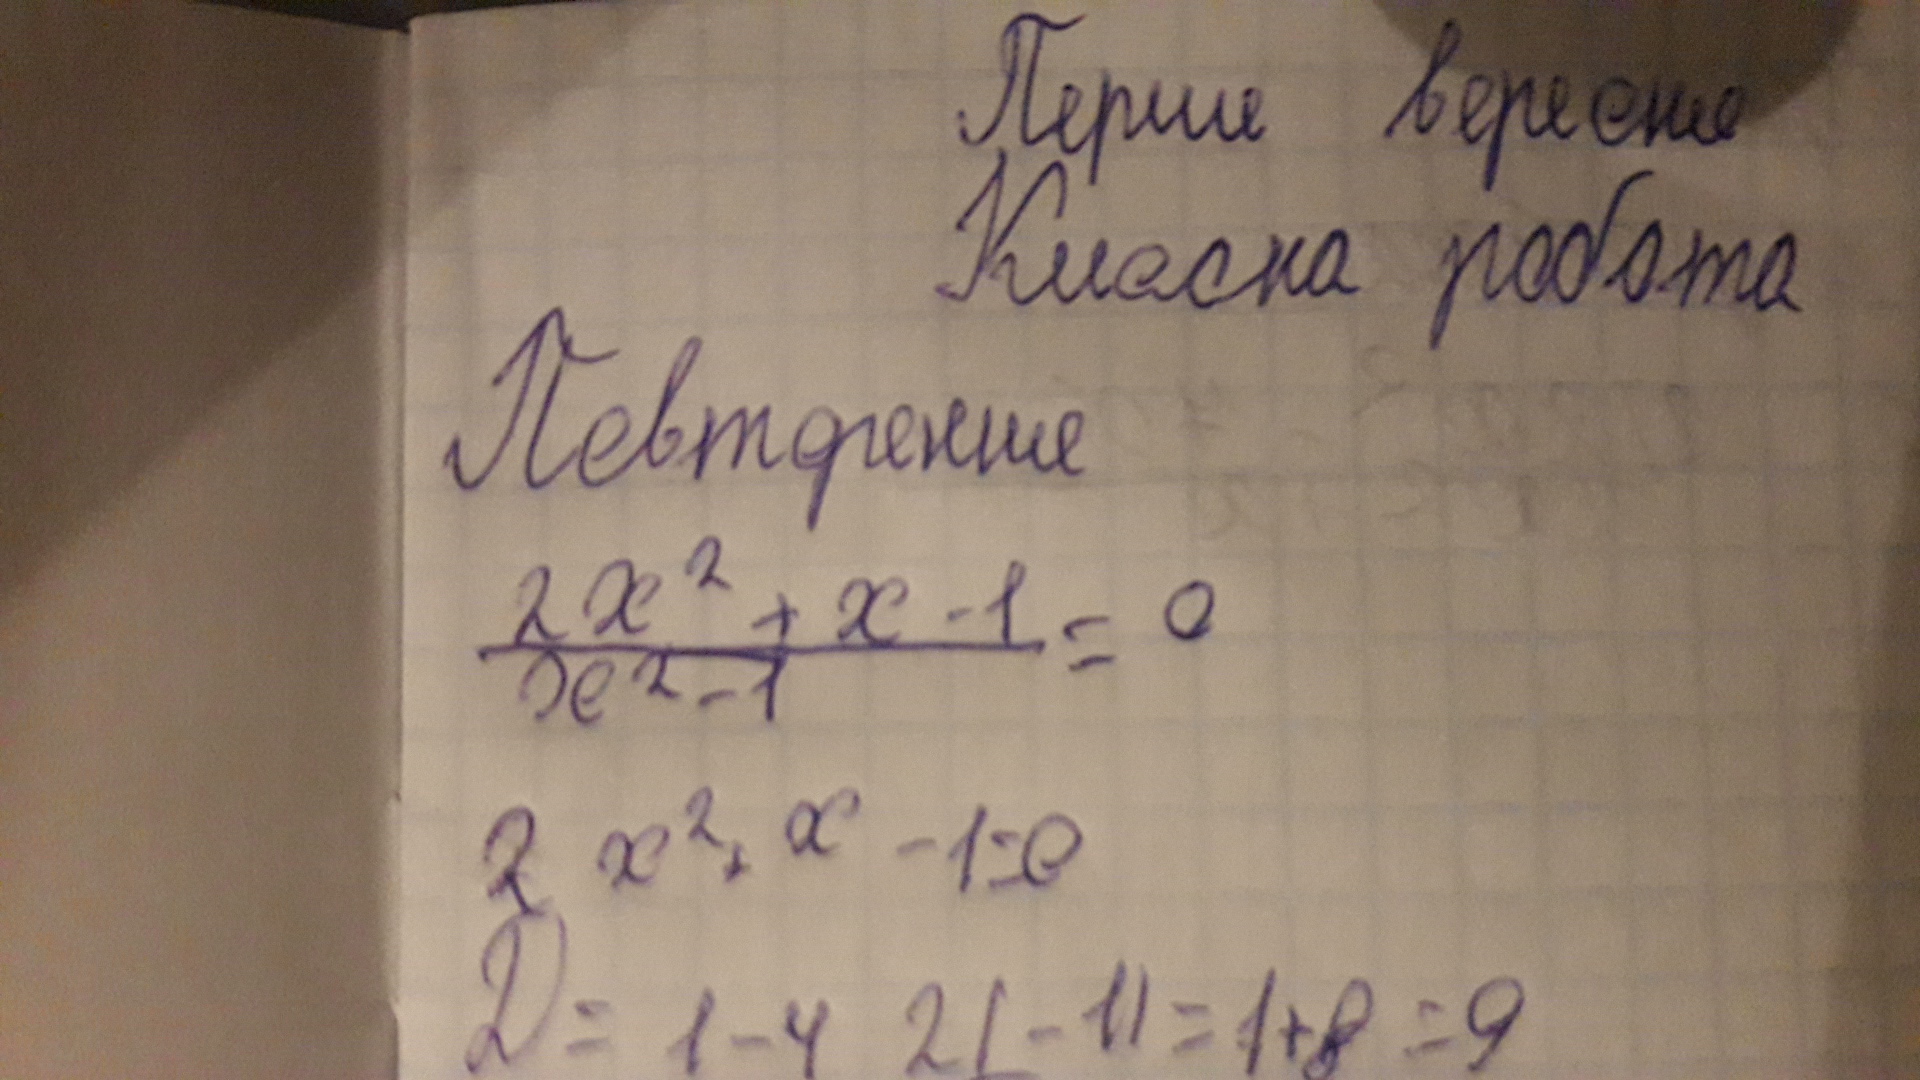 Перше вересня
Класна робота
Повторення
2x² + x - 1 = 0
x² - 1
2x² + x - 1 = 0
D = 1 - 4 2(-1) = 1 + 8 = 9